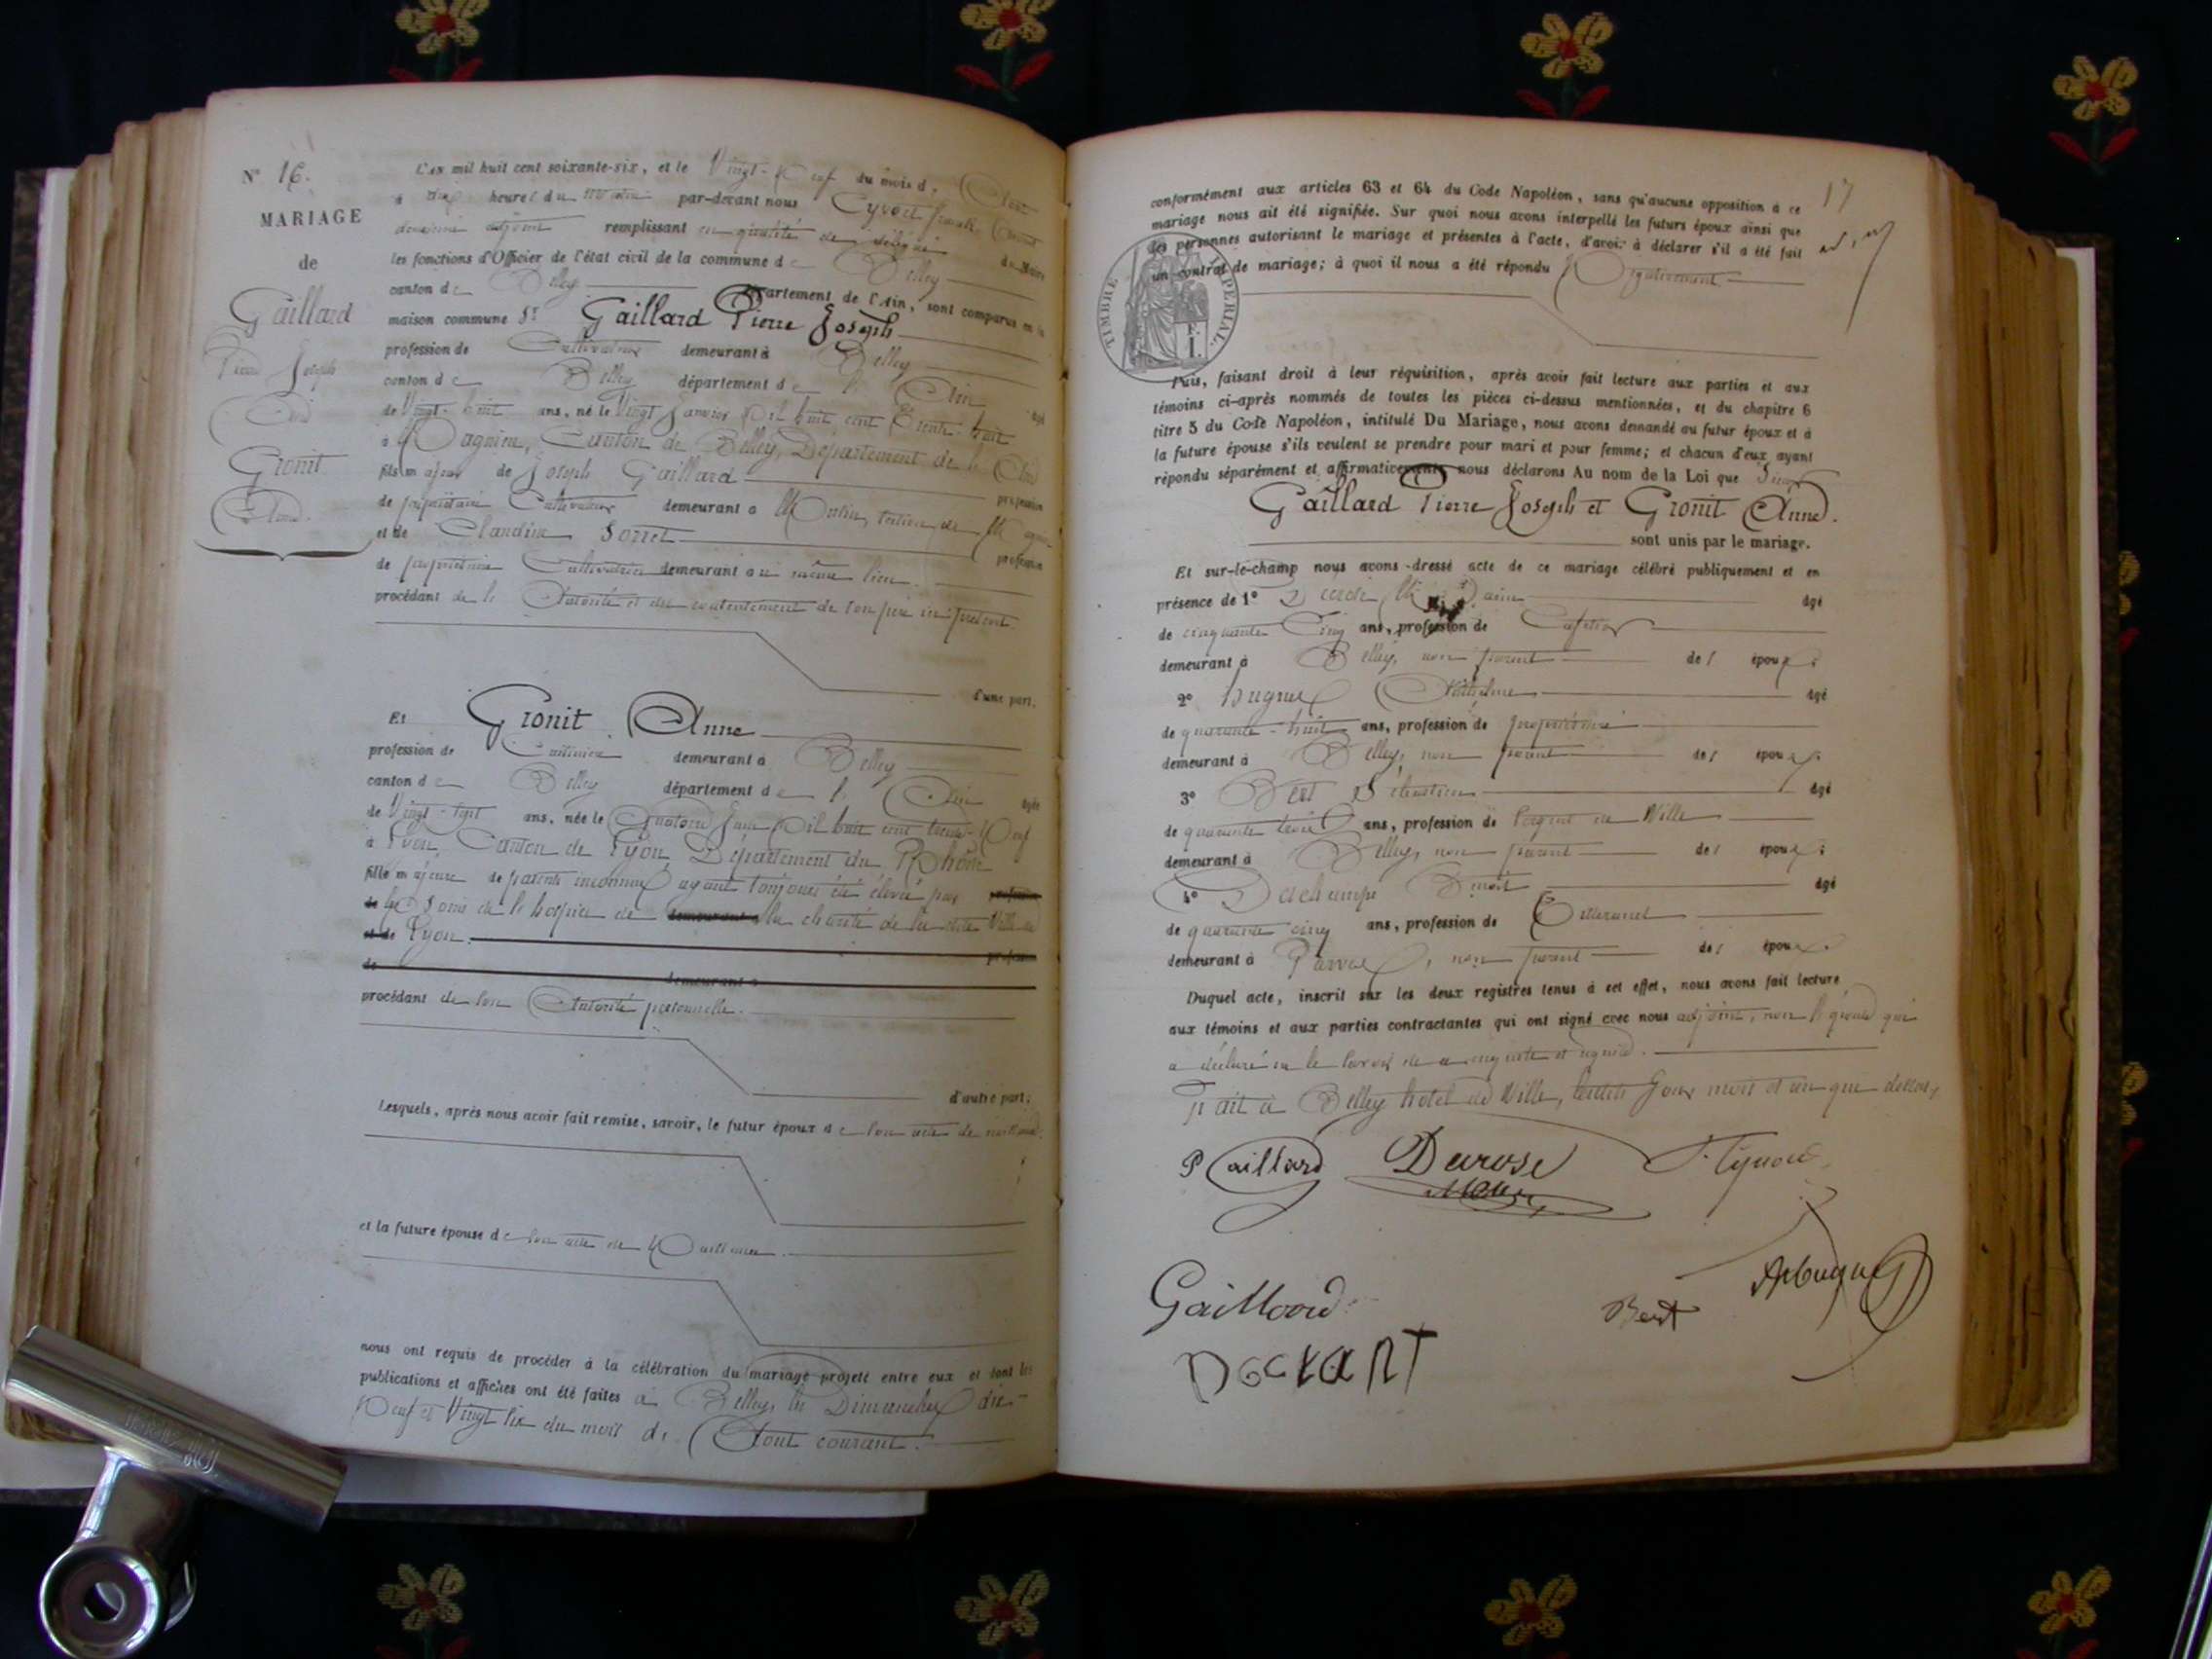 N° 16.
MARIAGE
de
Gaillard
Pierre Joseph
Gronit
L'an mil huit cent soixante-six, et le Vingt-Neuf du mois d'Aout
à dix heures du matin par-devant nous Cyvoct
deuxième adjoint remplissant en qualité de délégué du Maire
les fonctions d'Officier de l'état civil de la commune de Belley
canton de Belley département de l'Ain, sont comparus en la
maison commune Sr Gaillard Pierre Joseph
profession de Cultivateur demeurant à Belley
canton de Belley département de l'Ain âgé
de Vingt-huit ans, né le Vingt Janvier Mil huit cent Trente-huit
à Magnieu, Canton de Belley, Département de l'Ain
fils majeur de Joseph Gaillard profession
de propriétaire Cultivateur demeurant à
et de Claudine Sorret profession
de propriétaire Cultivatrice demeurant au même lieu.
procédant de l'Autorité et du consentement de son père ici présent
d'une part.
Et Gronit Anne
profession de Cuisinière demeurant à Belley
canton de Belley département de l'Ain âgée
de Vingt-sept ans, née le Quatorze Juin Mil huit cent trente-Neuf
à Lyon Canton de Lyon, Département du Rhône
fille majeure de parents inconnus ayant toujours été élevée par
les soins de l'hospice de la charité de la dite Ville de
Lyon.
demeurant à
procédant de son Autorité personnelle.
d'autre part;
Lesquels, après nous avoir fait remise, savoir, le futur époux de son acte de naissance.
et la future épouse de son acte de Naissance.
nous ont requis de procéder à la célébration du mariage projeté entre eux et dont les
publications et affiches ont été faites à Belley, les Dimanches dix-
Neuf et Vingt six du mois d'Aout courant.
17
conformément aux articles 63 et 64 du Code Napoléon, sans qu'aucune opposition à ce
mariage nous ait été signifiée. Sur quoi nous avons interpellé les futurs époux ainsi que
les personnes autorisant le mariage et présentes à l'acte, d'avoir à déclarer s'il a été fait
un contrat de mariage; à quoi il nous a été répondu Négativement
TIMBRE IMPÉRIAL
E. I.
Puis, faisant droit à leur réquisition, après avoir fait lecture aux parties et aux
témoins ci-après nommés de toutes les pièces ci-dessus mentionnées, et du chapitre 6
titre 5 du Code Napoléon, intitulé Du Mariage, nous avons demandé au futur époux et à
la future épouse s'ils veulent se prendre pour mari et pour femme; et chacun d'eux ayant
répondu séparément et affirmativement nous déclarons Au nom de la Loi que
Gaillard Pierre Joseph et Gronit Anne.
sont unis par le mariage.
Et sur-le-champ nous avons dressé acte de ce mariage célébré publiquement et en
présence de 1° âgé
de cinquante Cinq ans, profession de Cafetier
demeurant à Belley, non parent des époux;
2° hugues Anthelme âgé
de quarante-huit ans, profession de propriétaire
demeurant à Belley, non parent des époux;
3° Bert Sébastien âgé
de quarante trois ans, profession de Sergent de Ville
demeurant à Belley, non parent des époux;
4° Benoit âgé
de quarante cinq ans, profession de
demeurant à Parves, non parent des époux.
Duquel acte, inscrit sur les deux registres tenus à cet effet, nous avons fait lecture
aux témoins et aux parties contractantes qui ont signé avec nous adjoint, non l'épouse qui
a déclaré ne le savoir de ce enquise et requise.
Fait à Belley hotel de Ville, les dits Jour mois et an que dessus,
P Gaillard
Gaillard
Bert